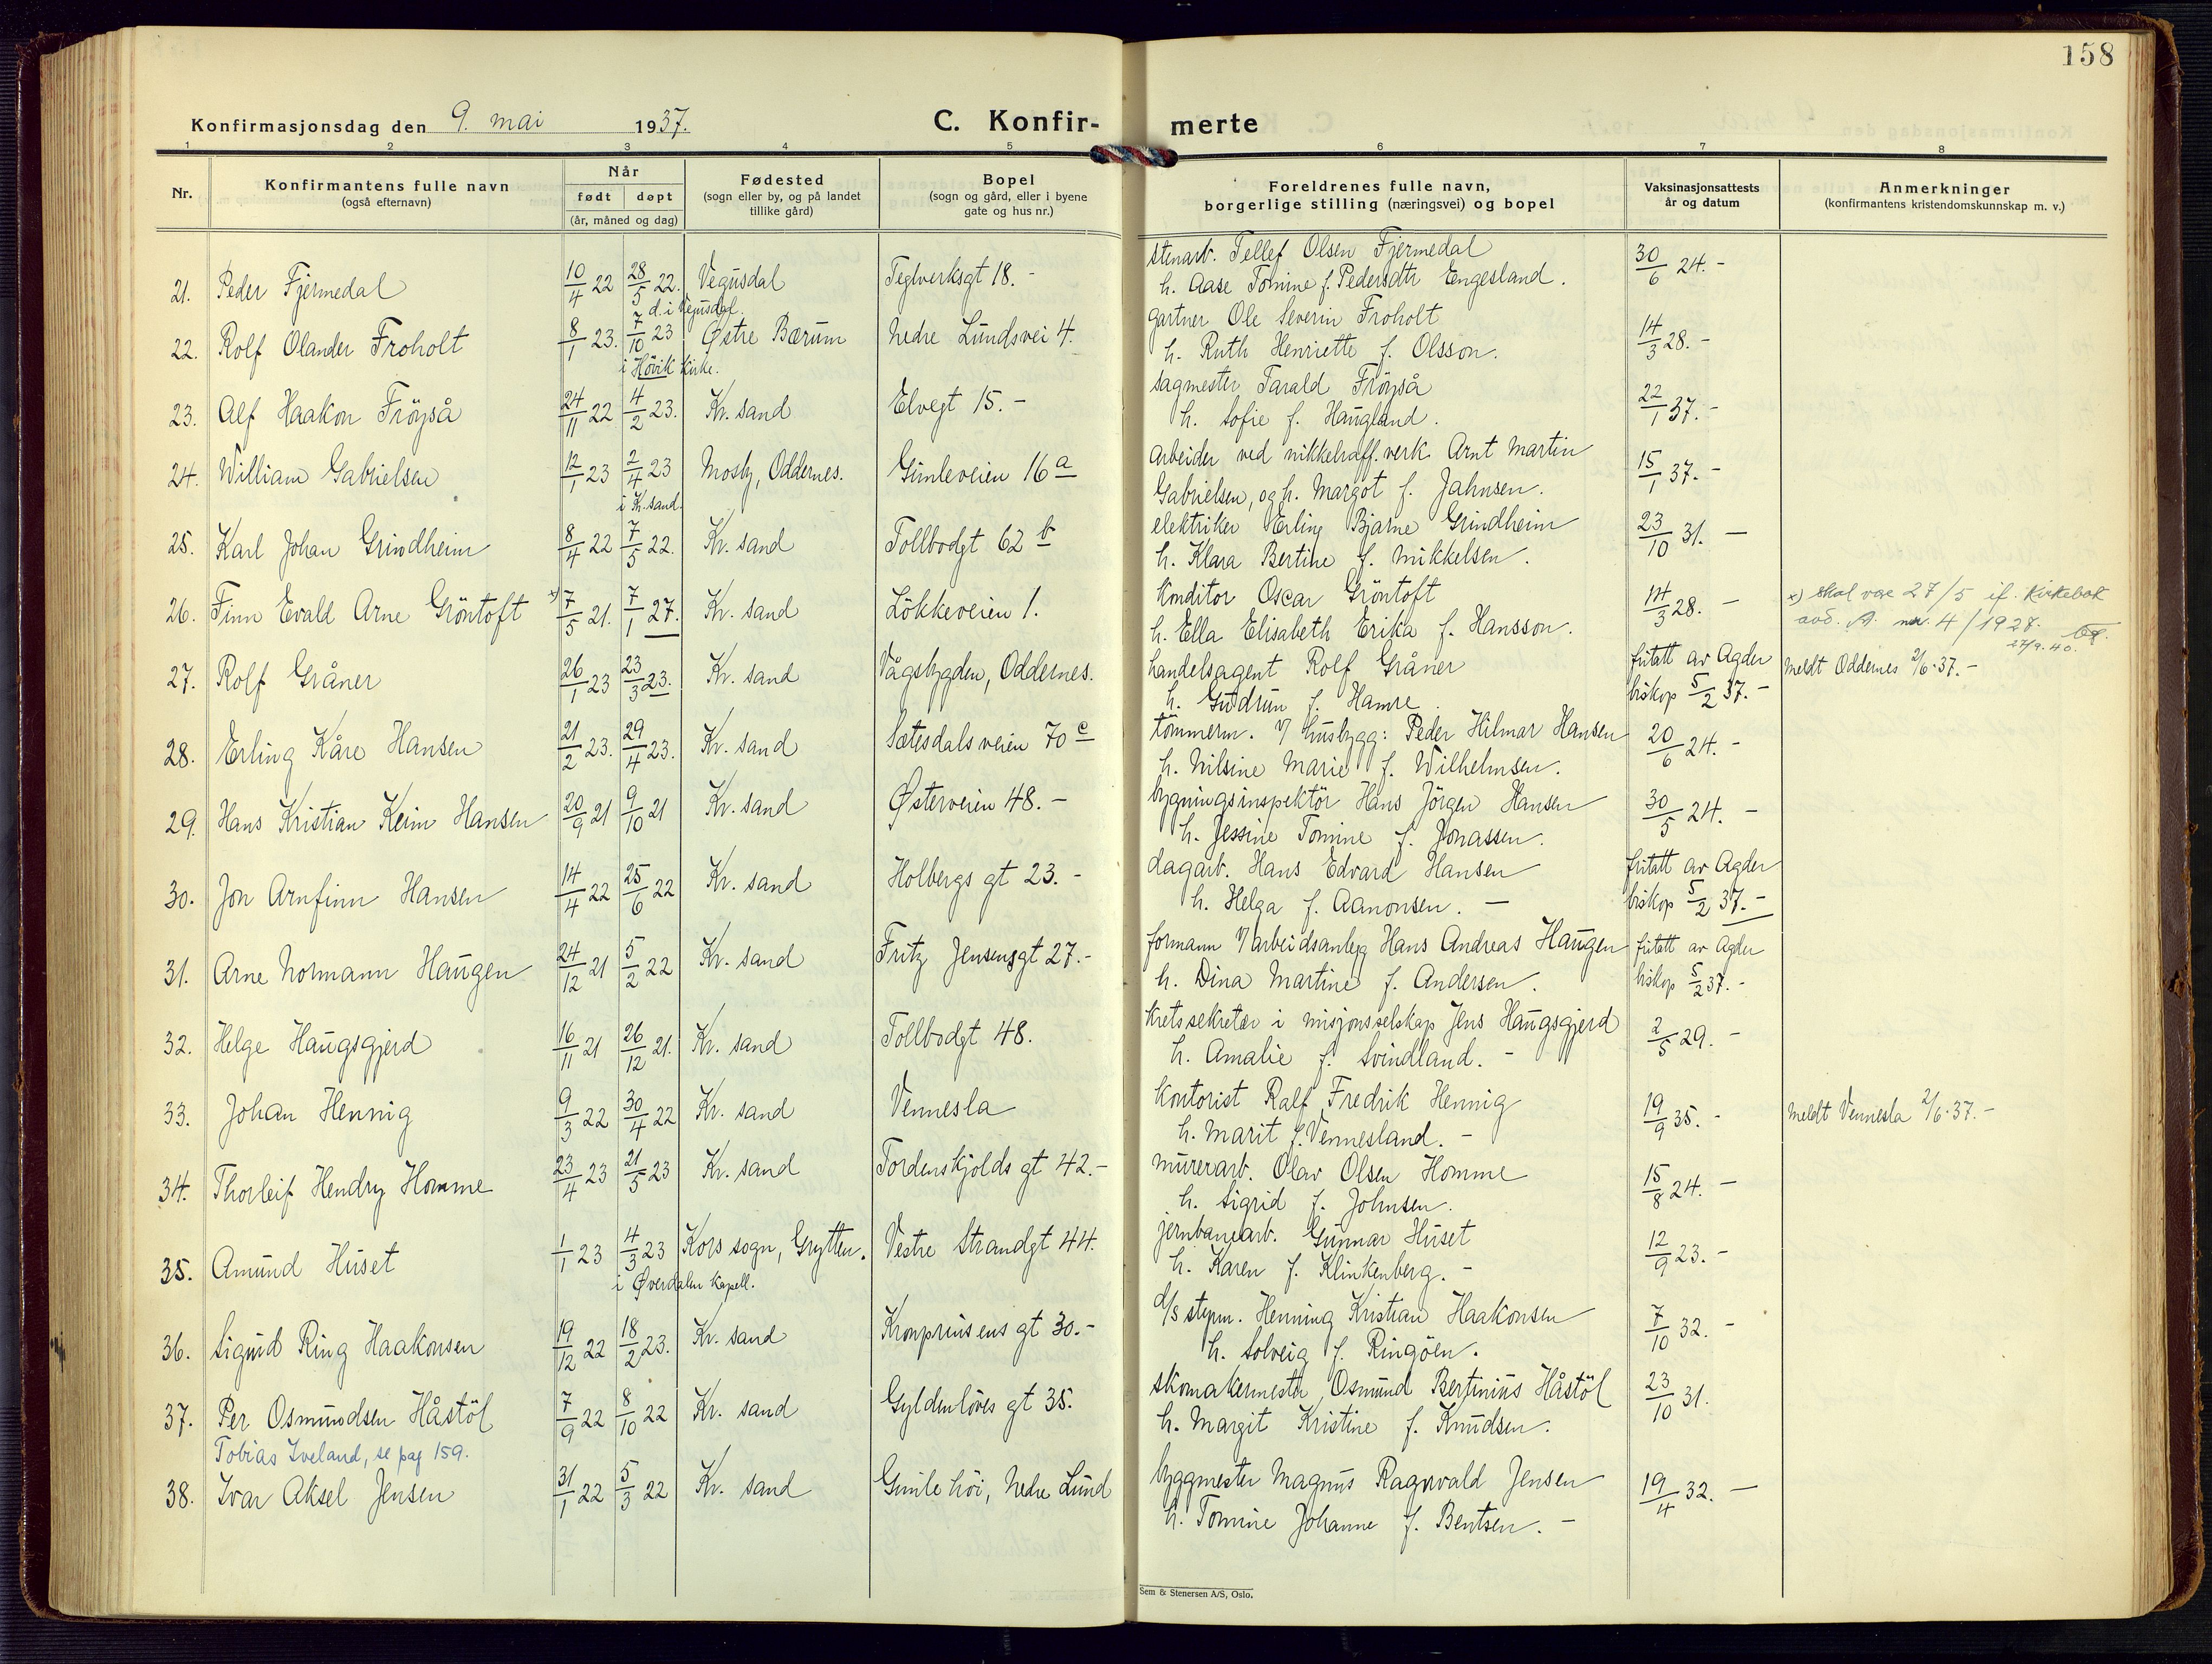 158
Konfirmasjonsdag den 9. mai 1937.
C. Konfir-merte
1 2 3 4 5 6 7 8
Nr.
Konfirmantens fulle navn
(også efternavn)
Når
født døpt
(år, måned og dag)
Fødested
(sogn eller by, og på landet
tillike gård)
Bopel
(sogn og gård, eller i byene
gate og hus nr.)
Foreldrenes fulle navn,
borgerlige stilling (næringsvei) og bopel
Vaksinasjonsattests
år og datum
Anmerkninger
(konfirmantens kristendomskunnskap m. v.)
21. Peder Fjermedal 10/4 22 28/5 22. Vegusdal Teglverksgt 18. -
d. i Vegusdal.
stenarb. Tellef Olsen Fjermedal
h. Aase Tomine f. Pedersdtr Engesland. 30/6 24. -
22. Rolf Olander Froholt 8/1 23. 7/10 23 Østre Bærum Nedre Lundsvei 4.
i Høvik kirke.
gartner Ole Severin Froholt
h. Ruth Henriette f. Olsson. 14/3 28. -
23. Alf Haakon Fröyså 24/11 22 4/2 23. Kr. sand Elvegt 15. -
sagmester Tarald Fröyså
h. Sofie f. Haugland. 22/1 37. -
24. William Gabrielsen 12/1 23 2/4 23 Mosby, Oddernes. Gimleveien 16 a
i Kr. sand.
arbeider ved nikkelraff.verk Arnt Martin
Gabrielsen, og h. Margot f. Jahnsen. 15/1 37. -
25. Karl Johan Grindheim 8/4 22 7/5 22. Kr. sand Tollbodgt 62 b
elektriker Erling Bjarne Grindheim
h. Klara Bertine f. Mikkelsen. 23/10 31. -
26. Finn Evald Arne Gröntoft x) 7/5 21. 7/1 27. Kr. sand Lökkeveien 1.
konditor Oscar Gröntoft
h. Ella Elisabeth Erika f. Hansson. 14/3 28. -
x) skal være 27/5 if. Kirkebok
avd. A. nr. 4/1927.
27/9.40.
27. Rolf Gråner 26/1 23 23/3 23. Kr. sand Vågsbygden, Oddernes.
handelsagent Rolf Gråner
h. Gudrun f. Hamre.
fritatt av Agder
biskop 5/2 37. -
Meldt Oddernes 2/6.37. -
28. Erling Kåre Hansen 21/2 23. 29/4 23. Kr. sand Sætesdalsveien 70 c
tömmerm. v/ husbygg: Peder Hilmar Hansen
h. Nilsine Marie f. Wilhelmsen. 20/6 24. -
29. Hans Kristian Keim Hansen 20/9 21 9/10 21 Kr. sand Østerveien 48. -
bygningsinspektör Hans Jörgen Hansen
h. Jessine Tomine f. Jonassen. 30/5 24. -
30. Jon Arnfinn Hansen 14/4 22 25/6 22 Kr. sand Holbergs gt 23. -
dagarb. Hans Edvard Hansen
h. Helga f. Aanonsen. -
fritatt av Agder
biskop 5/2 37. -
31. Arne Normann Haugen 24/12 21 5/2 22 Kr. sand Fritz Jensensgt 27. -
formann v/ arbeidsanlegg Hans Andreas Haugen
h. Dina Martine f. Andersen.
fritatt av Agder
biskop 5/2 37. -
32. Helge Haugsgjerd 16/11 21 26/12 21. Kr. sand Tollbodgt 48.
kretssekretær i misjonsselskap Jens Haugsgjerd
h. Amalie f. Svindland. - 2/5 29. -
33. Johan Hennig 9/3 22 30/4 22 Kr. sand Vennesla
kontorist Ralf Fredrik Hennig
h. Marit f. Vennesland. - 19/9 35. -
Meldt Vennesla 2/6.37. -
34. Thorleif Hendry Homme 23/4 23 21/5 23 Kr. sand Tordenskjolds gt 42. -
murerarb. Olav Olsen Homme
h. Sigrid f. Johnsen. 15/8 24. -
35. Amund Huset 1/1 23 4/3 23 Kors sogn, Grytten. Vestre Strandgt 44.
i Øverdalen kapell.
jernbanearb. Gunnar Huset
h. Karen f. Klinkenberg. - 12/9 23. -
36. Sigurd Ring Haakonsen 19/12 22 18/2 23. Kr. sand Kronprinsens gt 30. -
d/s styrm. Henning Kristian Haakonsen
h. Solveig f. Ringöen. 7/10 32. -
37. Per Osmundsen Håstöl 7/9 22 8/10 22 Kr. sand Gyldenlöves gt 35.
skomakermester Osmund Bertinius Håstöl
h. Margit Kristine f. Knudsen. 23/10 31.
Tobias Iveland, se pag 159.
38. Ivar Aksel Jensen 31/1 22 5/3 22 Kr. sand Gimle höi, Nedre Lund
byggmester Magnus Ragnvald Jensen
h. Tomine Johanne f. Bentsen. - 19/4 32. -
Sem & Stenersen A/S, Oslo.